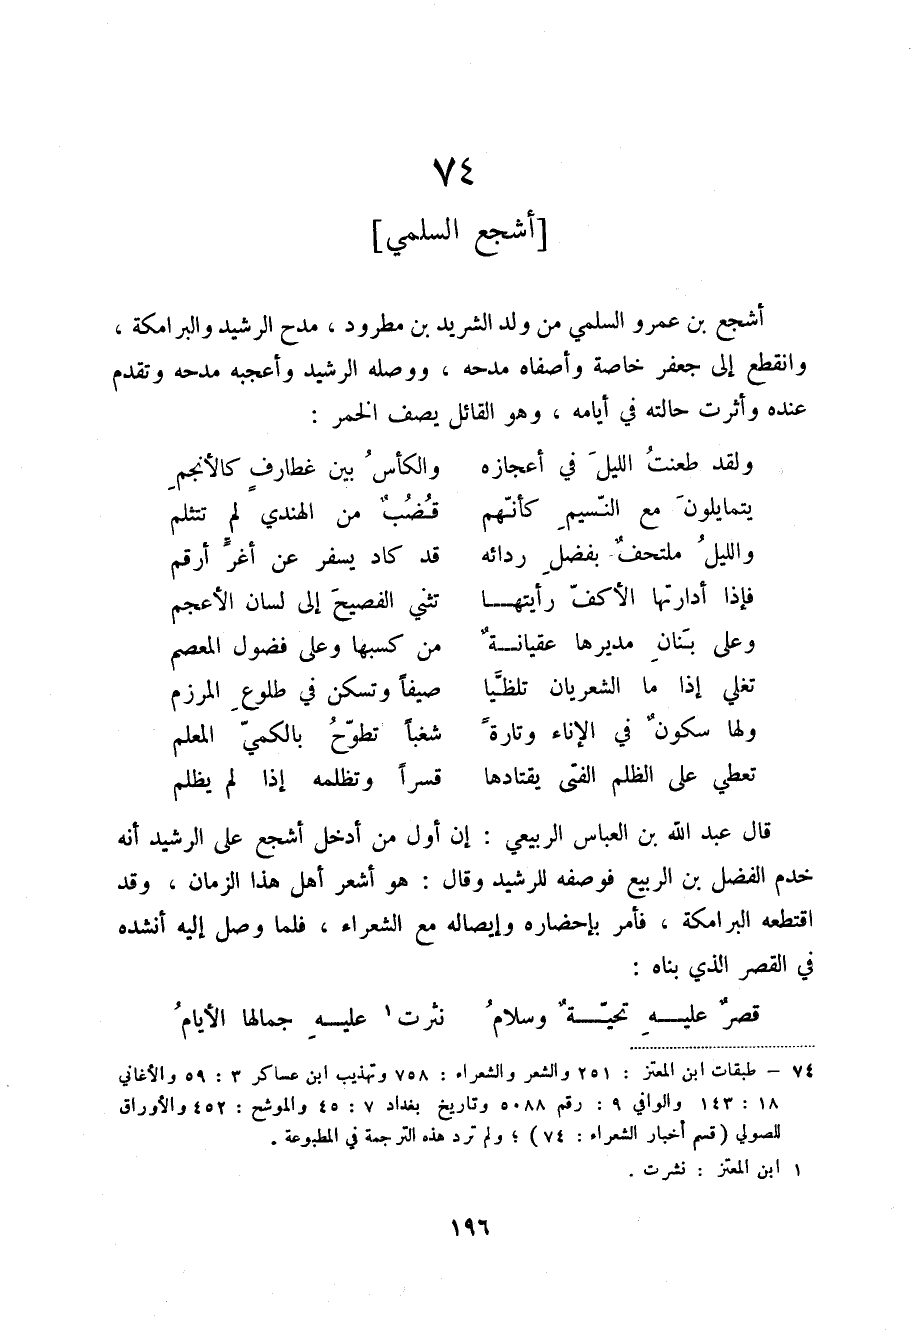 ٧٤
[أشجع السلمي]
أشجع بن عمرو السلمي من ولد الشريد بن مطرود ، مدح الرشيد والبرامكة ،
وانقطع إلى جعفر خاصة وأصفاه مدحه ، ووصله الرشيد وأعجبه مدحه وتقدم
عنده وأثرت حالته في أيامه ، وهو القائل يصف الخمر :
ولقد طعنتُ الليلَ في أعجازه والكأسُ بين غطارفٍ كالأنجمِ
يتمايلونَ مع النّسيمِ كأنّهم قُضُبٌ من الهندي لم تتثلم
والليلُ ملتحفٌ بفضلِ ردائه قد كاد يسفر عن أغرٍّ أرقم
فإذا أدارتها الأكفّ رأيتهـــا تثني الفصيحَ إلى لسان الأعجم
وعلى بَنانِ مديرها عقيانــةٌ من كسبها وعلى فضول المعصم
تغلي إذا ما الشعريان تلظَّيا صيفاً وتسكن في طلوعِ المرزم
ولها سكونٌ في الإناء وتارةً شغباً تطوّحُ بالكميّ المعلم
تعطي على الظلم الفتى يقتادها قسراً وتظلمه إذا لم يظلم
قال عبد الله بن العباس الربيعي : إن أول من أدخل أشجع على الرشيد أنه
خدم الفضل بن الربيع فوصفه للرشيد وقال : هو أشعر أهل هذا الزمان ، وقد
اقتطعه البرامكة ، فأمر بإحضاره وإيصاله مع الشعراء ، فلما وصل إليه أنشده
في القصر الذي بناه :
قصرٌ عليـــهِ تحيّـــةٌ وسلامُ نثرت١ عليـــهِ جمالها الأيامُ
٧٤ – طبقات ابن المعتز : ٢٥١ والشعر والشعراء : ٧٥٨ وتهذيب ابن عساكر ٣ : ٥٩ والأغاني
١٨ : ١٤٣ والوافي ٩ : رقم ٥٠٨٨ وتاريخ بغداد ٧ : ٤٥ والموشح : ٤٥٢ والأوراق
للصولي (قسم أخبار الشعراء : ٧٤) ؛ ولم ترد هذه الترجمة في المطبوعة .
١ ابن المعتز : نشرت .
١٩٦